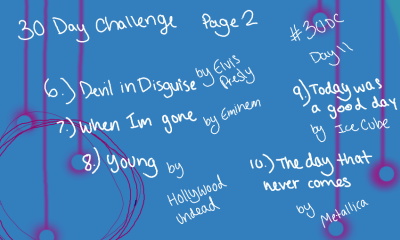 30 Day Challenge Page 2
#30DC
Day 11
6.) Devil in Disguise by Elvis
Presly
7.) When Im gone by Eminem
8.) Young by
Hollywood
Undead
9.) Today was
a good day
by Ice Cube
10.) The day that
never comes
by Metallica